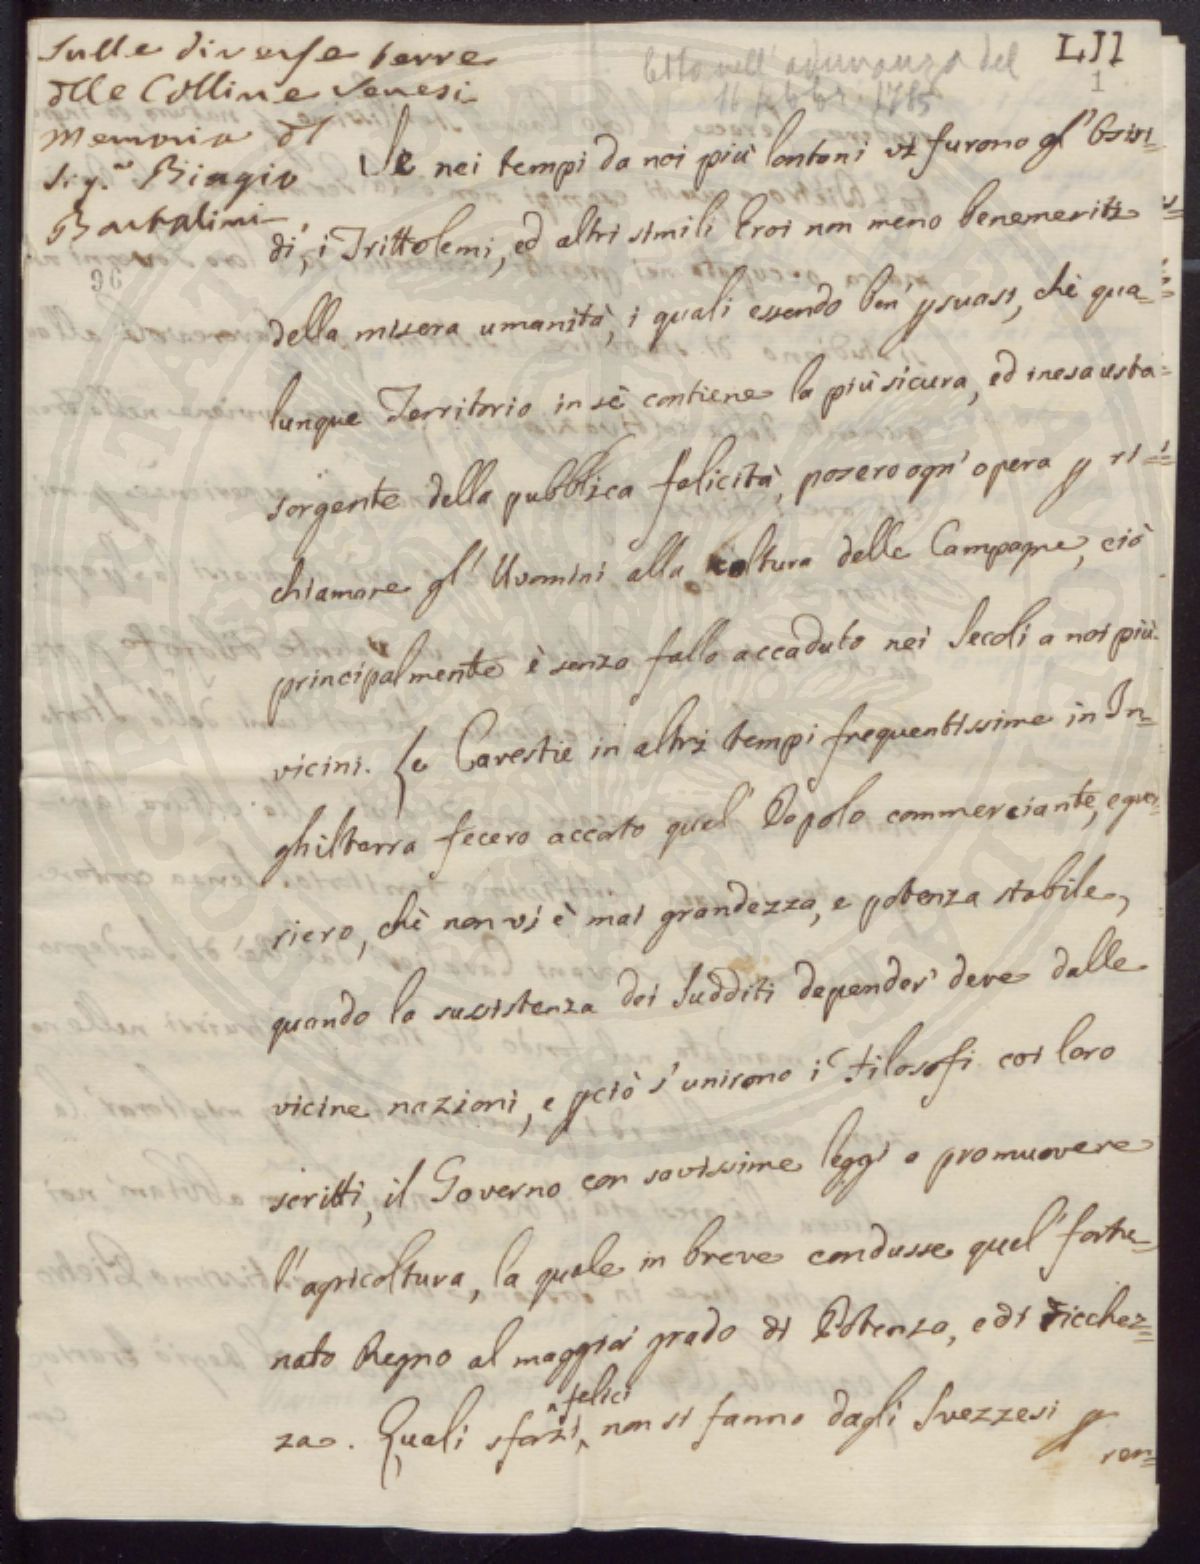 Sulle diverse terre
dlle Colline Senesi
Memoria dl
Sig.re Biagio
Bartalini
96
letto nell' adunanza del
11 febbr. 1785
LII
1
Se nei tempi da noi più lontani vi furono gl' Osiri=
di, i Trittolemi, ed altri simili Eroi non meno benemeriti
della misera umanità, i quali essendo ben psuasi, chè qua=
lunque Territorio in sè contiene la più sicura, ed inesausta
sorgente della pubblica felicità, posero ogn' opera p ri=
chiamare gl' Uomini alla coltura delle Campagne, ciò
principalmente è senza fallo accaduto nei Secoli a noi più
vicini. Le Carestie in altri tempi frequentissime in In=
ghilterra fecero accorto quel' Popolo commerciante, e guer=
riero, chè non vi è mai grandezza, e potenza stabile,
quando la sussistenza dei Sudditi depender' deve dalle
vicine nazioni, e pciò s' unirono i Filosofi coi loro
scritti, il Governo con savissime leggi a promuovere
l' agricoltura, la quale in breve condusse quel' fortu=
nato Regno al maggior grado di Potenza, e di ricchez=
za. Quali sforzi felici non si fanno dagli Svezzesi p
ren=